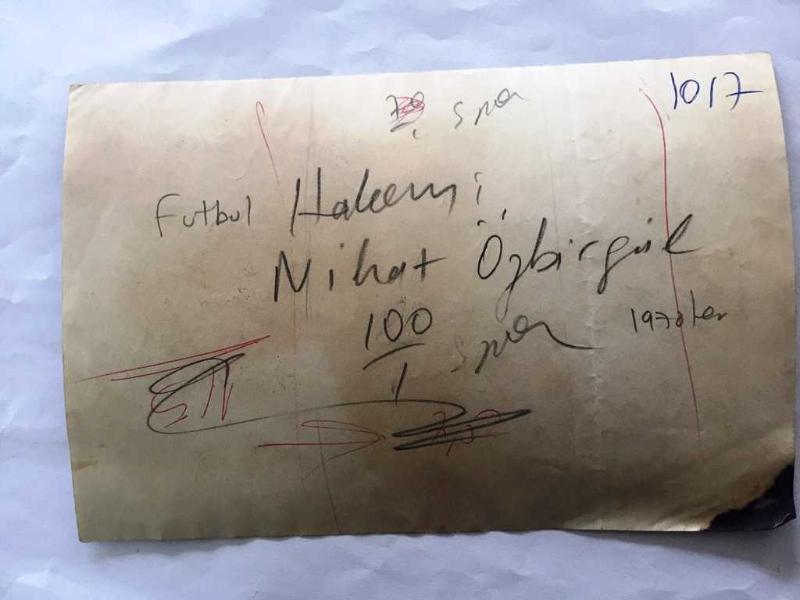 1017
spor
Futbol Hakemi
Nihat Özbirgül
100
1 spor 1970ler